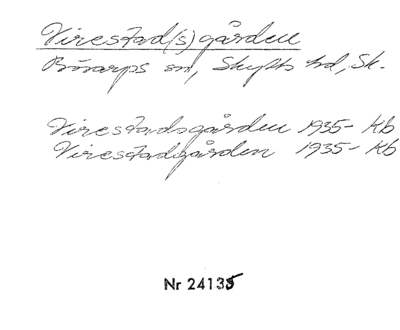 Virestad(s)gården
Bösarps sn, Skytts hd, Sk.
Virestadsgården 1935- Kb
Virestadsgården 1935- Kb
Nr 24135